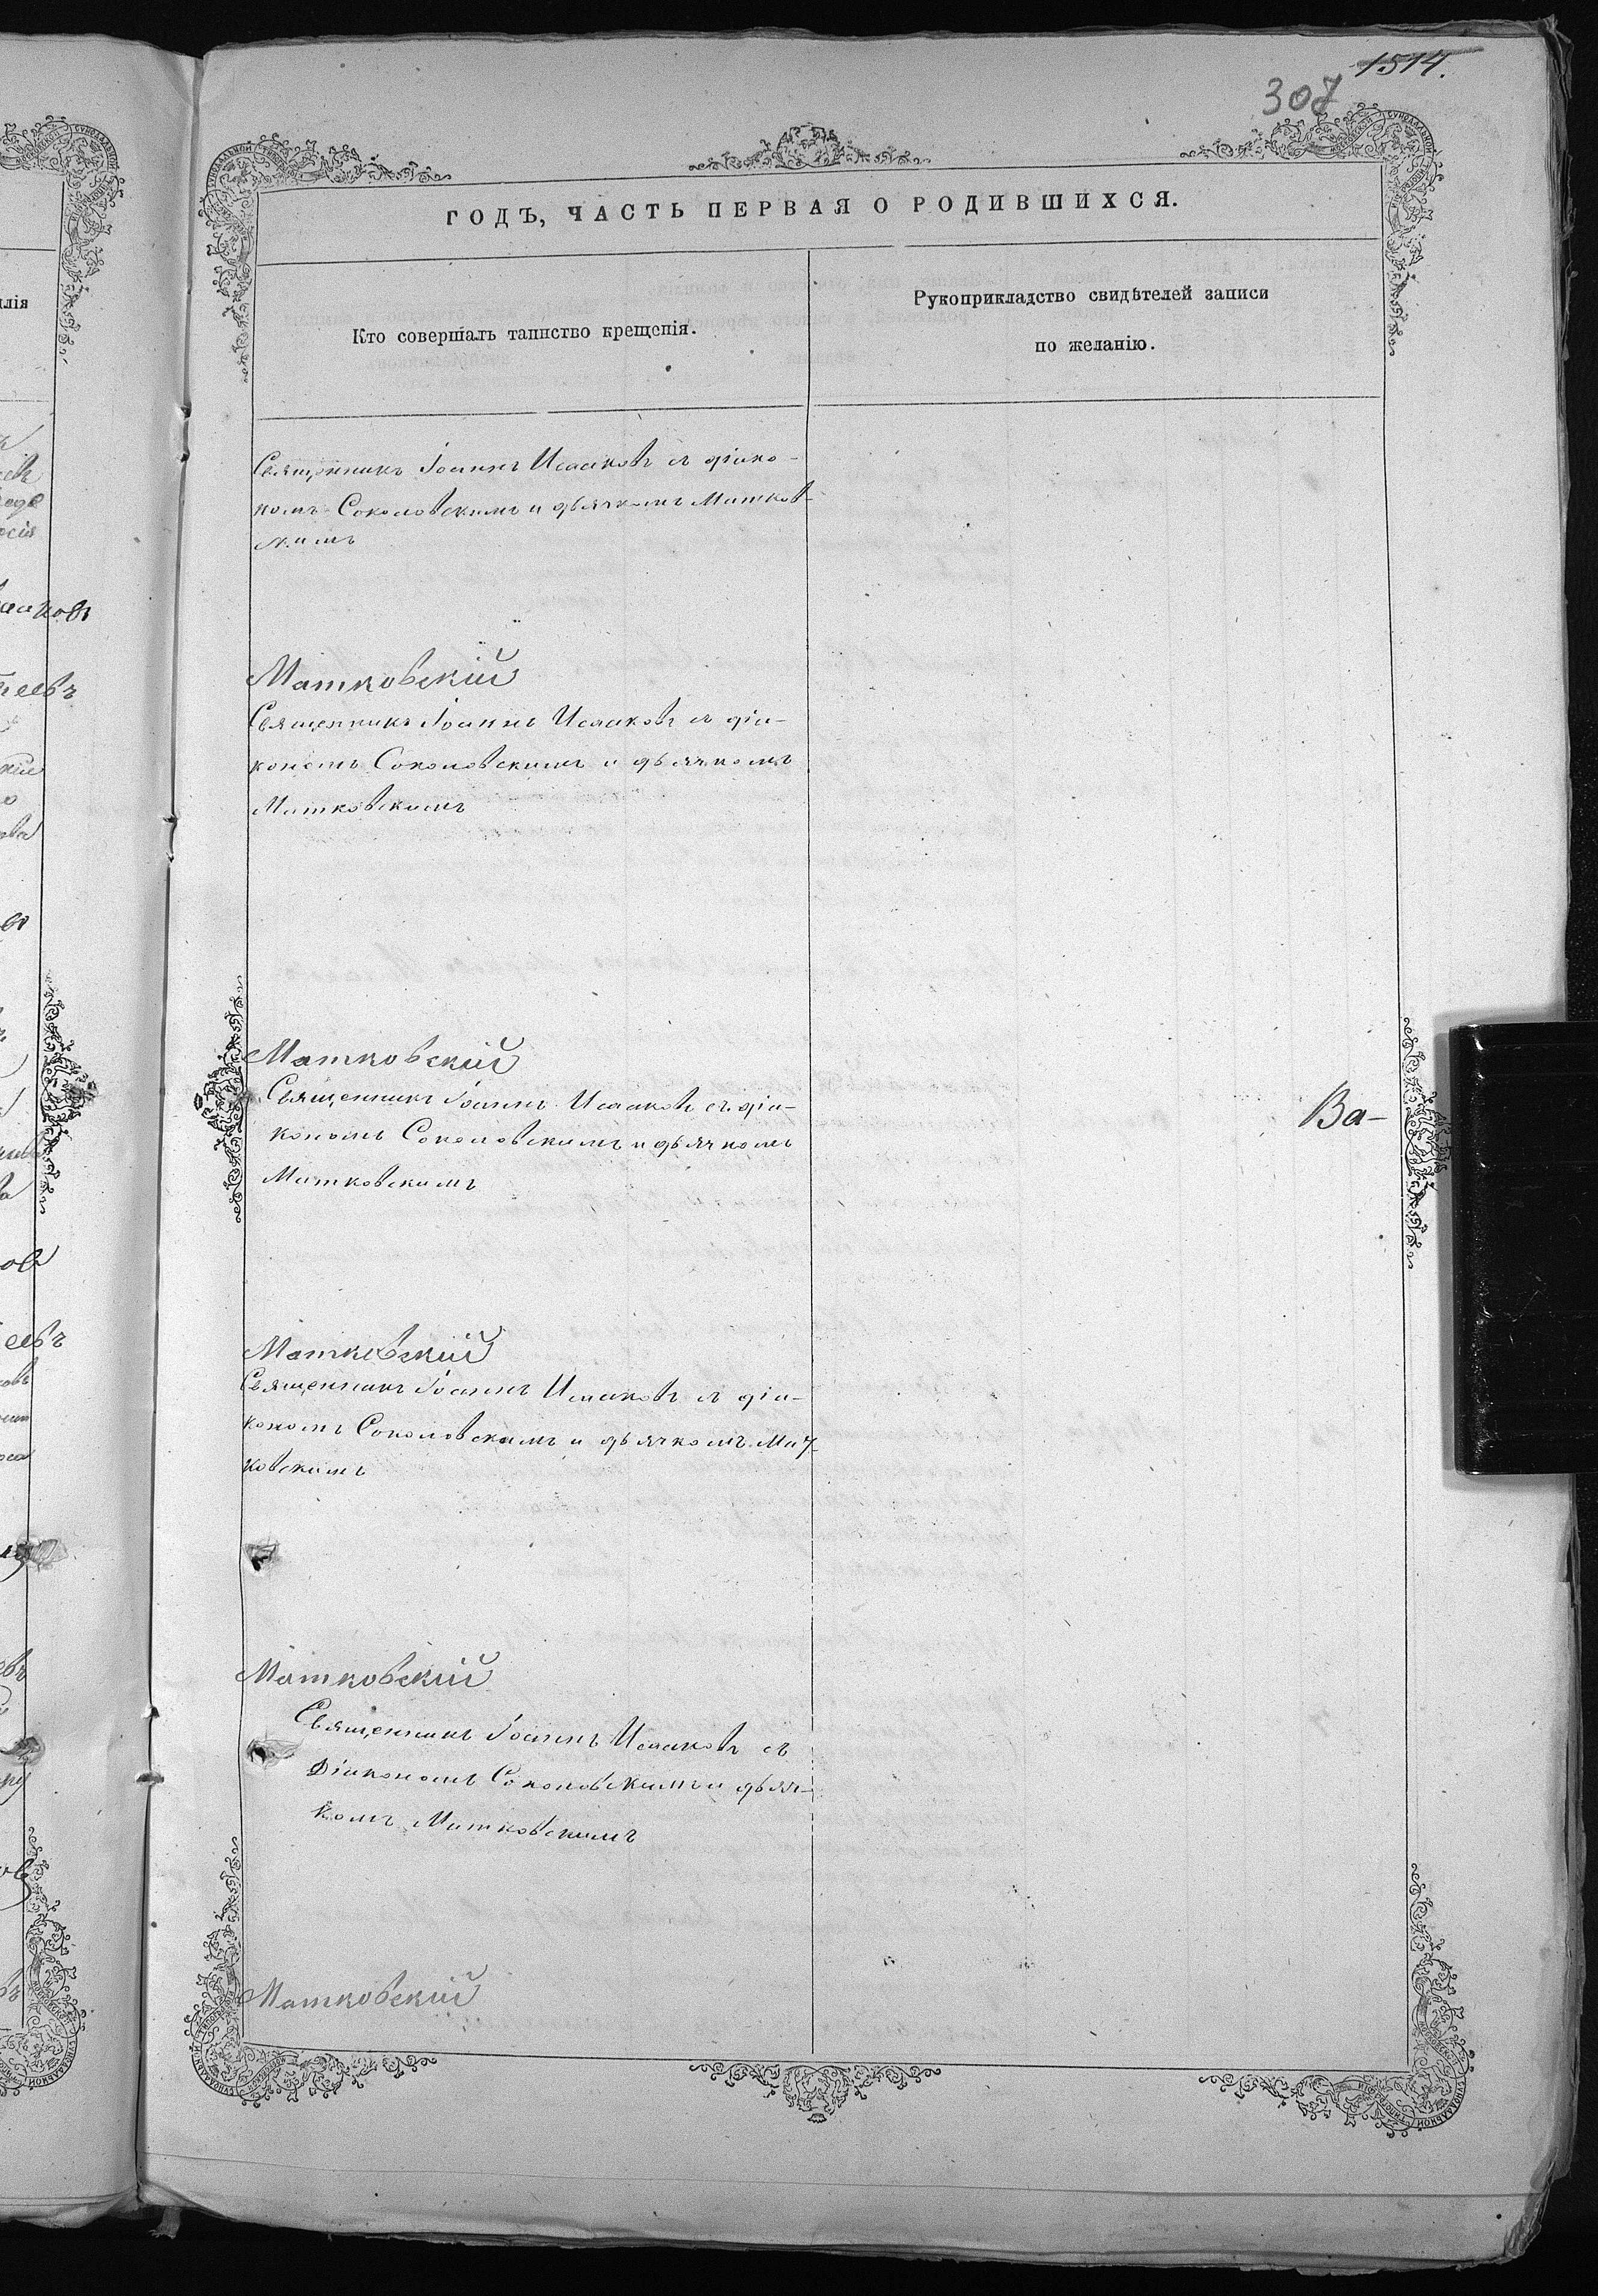 1514.
307
ГОДЪ, ЧАСТЬ ПЕРВАЯ О РОДИВШИХСЯ.
Кто совершалъ таинство крещенія.
Рукоприкладство свидѣтелей записи
по желанію.
Священникъ Іоаннъ Исааковъ съ діако-
номъ Соколовскимъ и дьячкомъ Матков-
скимъ
Матковскій
Священникъ Іоаннъ Исааковъ съ діа-
кономъ Соколовскимъ и дьячкомъ
Матковскимъ
Матковскій
Священникъ Іоаннъ Исааковъ съ діа-
кономъ Соколовскимъ и дьячкомъ
Матковскимъ
Ва-
Матковскій
Священникъ Іоаннъ Исааковъ съ діа-
кономъ Соколовскимъ и дьячкомъ Мат-
ковскимъ
Матковскій
Священникъ Іоаннъ Исааковъ съ
Діакономъ Соколовскимъ и дьяч-
комъ Матковскимъ
Матковскій